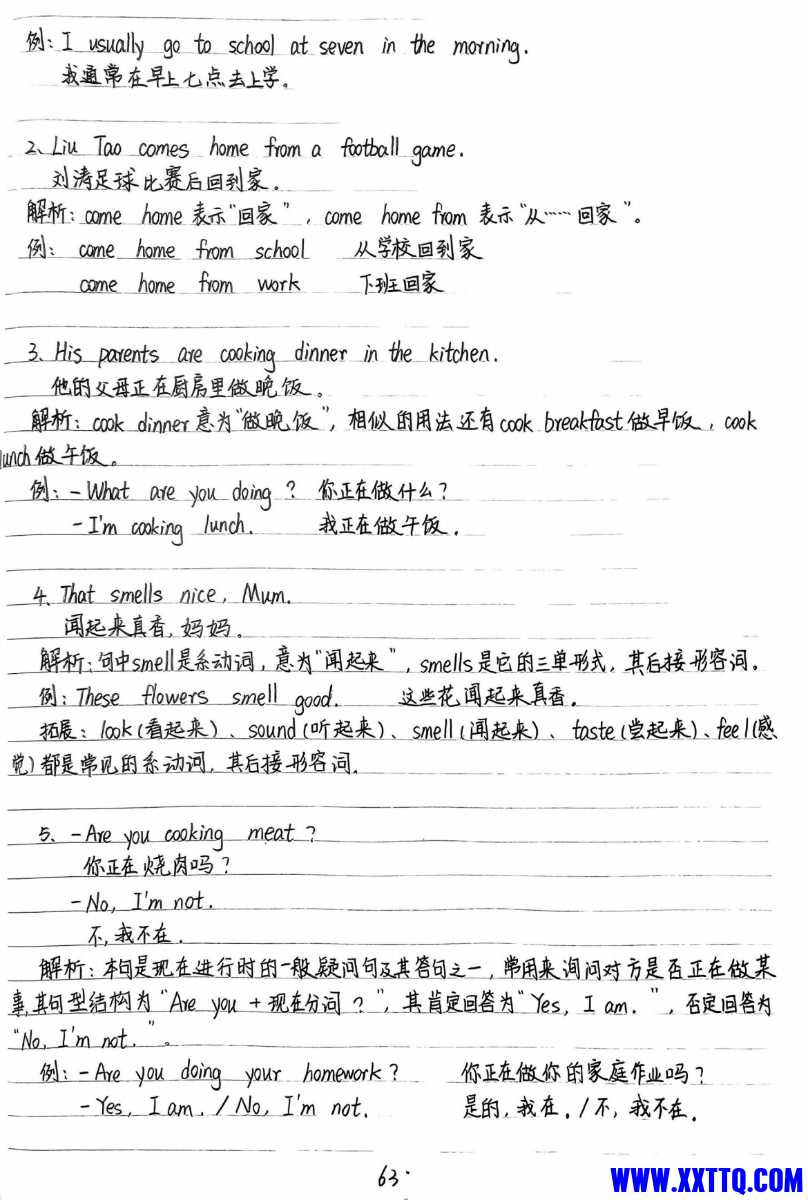 例：I usually go to school at seven in the morning.
我通常在早上七点去上学。
2、Liu Tao comes home from a football game.
刘涛足球比赛后回到家。
解析：come home 表示“回家”，come home from 表示“从……回家”。
例：come home from school 从学校回到家
come home from work 下班回家
3、His parents are cooking dinner in the kitchen.
他的父母正在厨房里做晚饭。
解析：cook dinner 意为“做晚饭”，相似的用法还有 cook breakfast 做早饭，cook
lunch 做午饭。
例：-What are you doing？ 你正在做什么？
-I'm cooking lunch. 我正在做午饭．
4、That smells nice, Mum.
闻起来真香，妈妈。
解析：句中smell是系动词，意为“闻起来”，smells是它的三单形式，其后接形容词．
例：These flowers smell good. 这些花闻起来真香．
拓展：look(看起来)、sound(听起来)、smell(闻起来)、taste(尝起来)、feel(感
觉)都是常见的系动词，其后接形容词．
5、-Are you cooking meat？
你正在烧肉吗？
-No, I'm not.
不，我不在．
解析：本句是现在进行时的一般疑问句及其答句之一，常用来询问对方是否正在做某
事，其句型结构为“Are you + 现在分词？”，其肯定回答为“Yes, I am.”，否定回答为
“No, I'm not.”。
例：-Are you doing your homework？ 你正在做你的家庭作业吗？
-Yes, I am. / No, I'm not. 是的，我在．/不，我不在．
63.
WWW.XXTTQ.COM